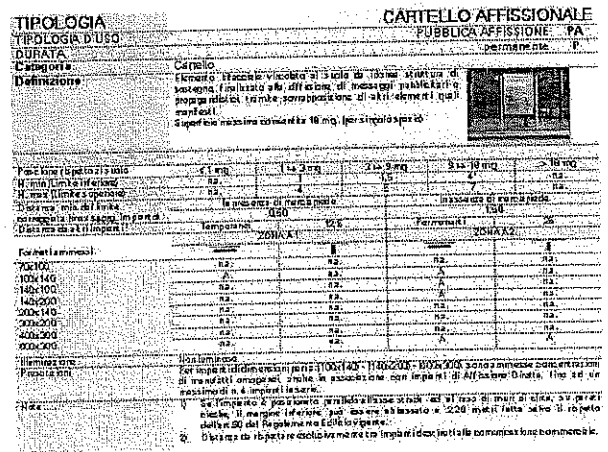 TIPOLOGIA CARTELLO AFFISSIONALE
TIPOLOGIA D'USO PUBBLICA AFFISSIONE PA
DURATA permanente P
Categoria Cartello
Definizione Elemento bifacciale vincolato al suolo da idonea struttura di
sostegno, finalizzato alla diffusione di messaggi pubblicitari o
propagandistici tramite sovrapposizione di altri elementi quali
manifesti.
Superficie massima consentita 18 mq. (per singolo spazio)
Posizione rispetto al suolo ≤ 1 mq 9 ÷ 18 mq > 18 mq
H. min (Limite inferiore) 1,5 4* n.a.
H. max (Limite superiore) n.a. 4 7 n.a.
Distanza min. da limite In presenza di marciapiede In assenza di marciapiede
carreggiata 0,50 1,50
Distanza da altri impianti Temporanei 12,5 Permanenti 25
ZONA A1 ZONA A2
Formati ammessi
70x100 n.a. n.a. n.a. n.a.
100x140 A n.a. A n.a.
140x100 n.a. n.a.
140x200 A n.a. A n.a.
200x140 n.a. n.a. n.a.
300x200 n.a. n.a.
400x300 n.a. n.a.
600x300 n.a. A
Illuminazione Non luminoso
Prescrizioni Per impianti di dimensioni pari a (100x140) - (140x200) - (600x300) sono ammesse concentrazioni
di manufatti omogenei, anche in associazione con impianti di Affissione Diretta, fino ad un
massimo di n. impianti in serie.
Note 1) Se l'impianto è posizionato parallelo all'asse strada ed al raso di muri di cinta, su pareti
cieche, il margine inferiore può essere abbassato a 2,20 metri fatto salvo il rispetto
dell'art. 50 del Regolamento Edilizio vigente.
2) Distanza da rispettare esclusivamente tra impianti destinati alla comunicazione commerciale.